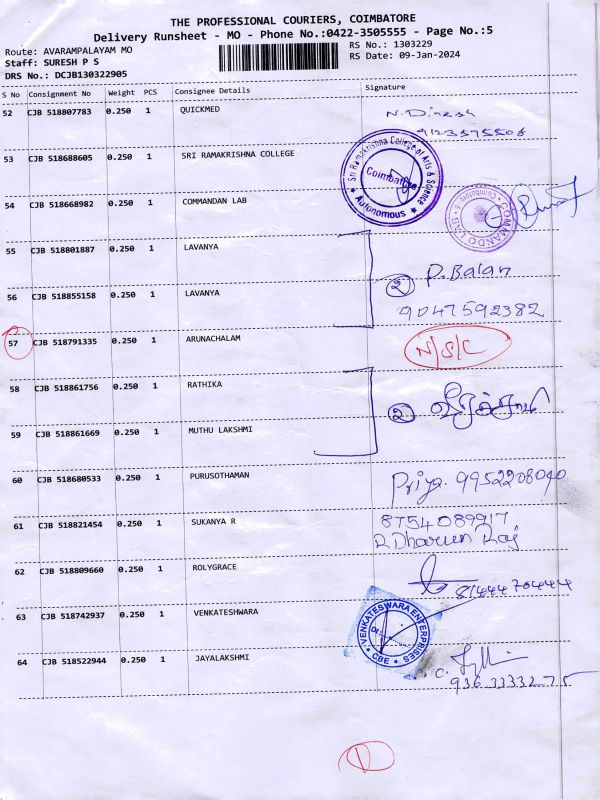 THE PROFESSIONAL COURIERS, COIMBATORE
Delivery Runsheet - MO - Phone No.:0422-3505555 - Page No.:5
Route: AVARAMPALAYAM MO RS No.: 1303229
Staff: SURESH P S RS Date: 09-Jan-2024
DRS No.: DCJB130322905
S No Consignment No Weight PCS Consignee Details Signature
52 CJB 518807783 0.250 1 QUICKMED N. Dinesh
9123575508
53 CJB 518688605 0.250 1 SRI RAMAKRISHNA COLLEGE
Sri Ramakrishna College of Arts & Science
Coimbatore
Autonomous
54 CJB 518668982 0.250 1 COMMANDAN LAB
COMMANDO LAB
55 CJB 518801887 0.250 1 LAVANYA
2 P. Balan
56 CJB 518855158 0.250 1 LAVANYA
9047592382
57 CJB 518791335 0.250 1 ARUNACHALAM N/S/C
58 CJB 518861756 0.250 1 RATHIKA
2
59 CJB 518861669 0.250 1 MUTHU LAKSHMI
60 CJB 518680533 0.250 1 PURUSOTHAMAN Priya. 9952208040
61 CJB 518821454 0.250 1 SUKANYA R 8754089917
R Dharun Raj
62 CJB 518809660 0.250 1 ROLYGRACE
8144470444
63 CJB 518742937 0.250 1 VENKATESHWARA
VENKATESWARA ENTERPRISES
CBE
64 CJB 518522944 0.250 1 JAYALAKSHMI
936 33332 75
1